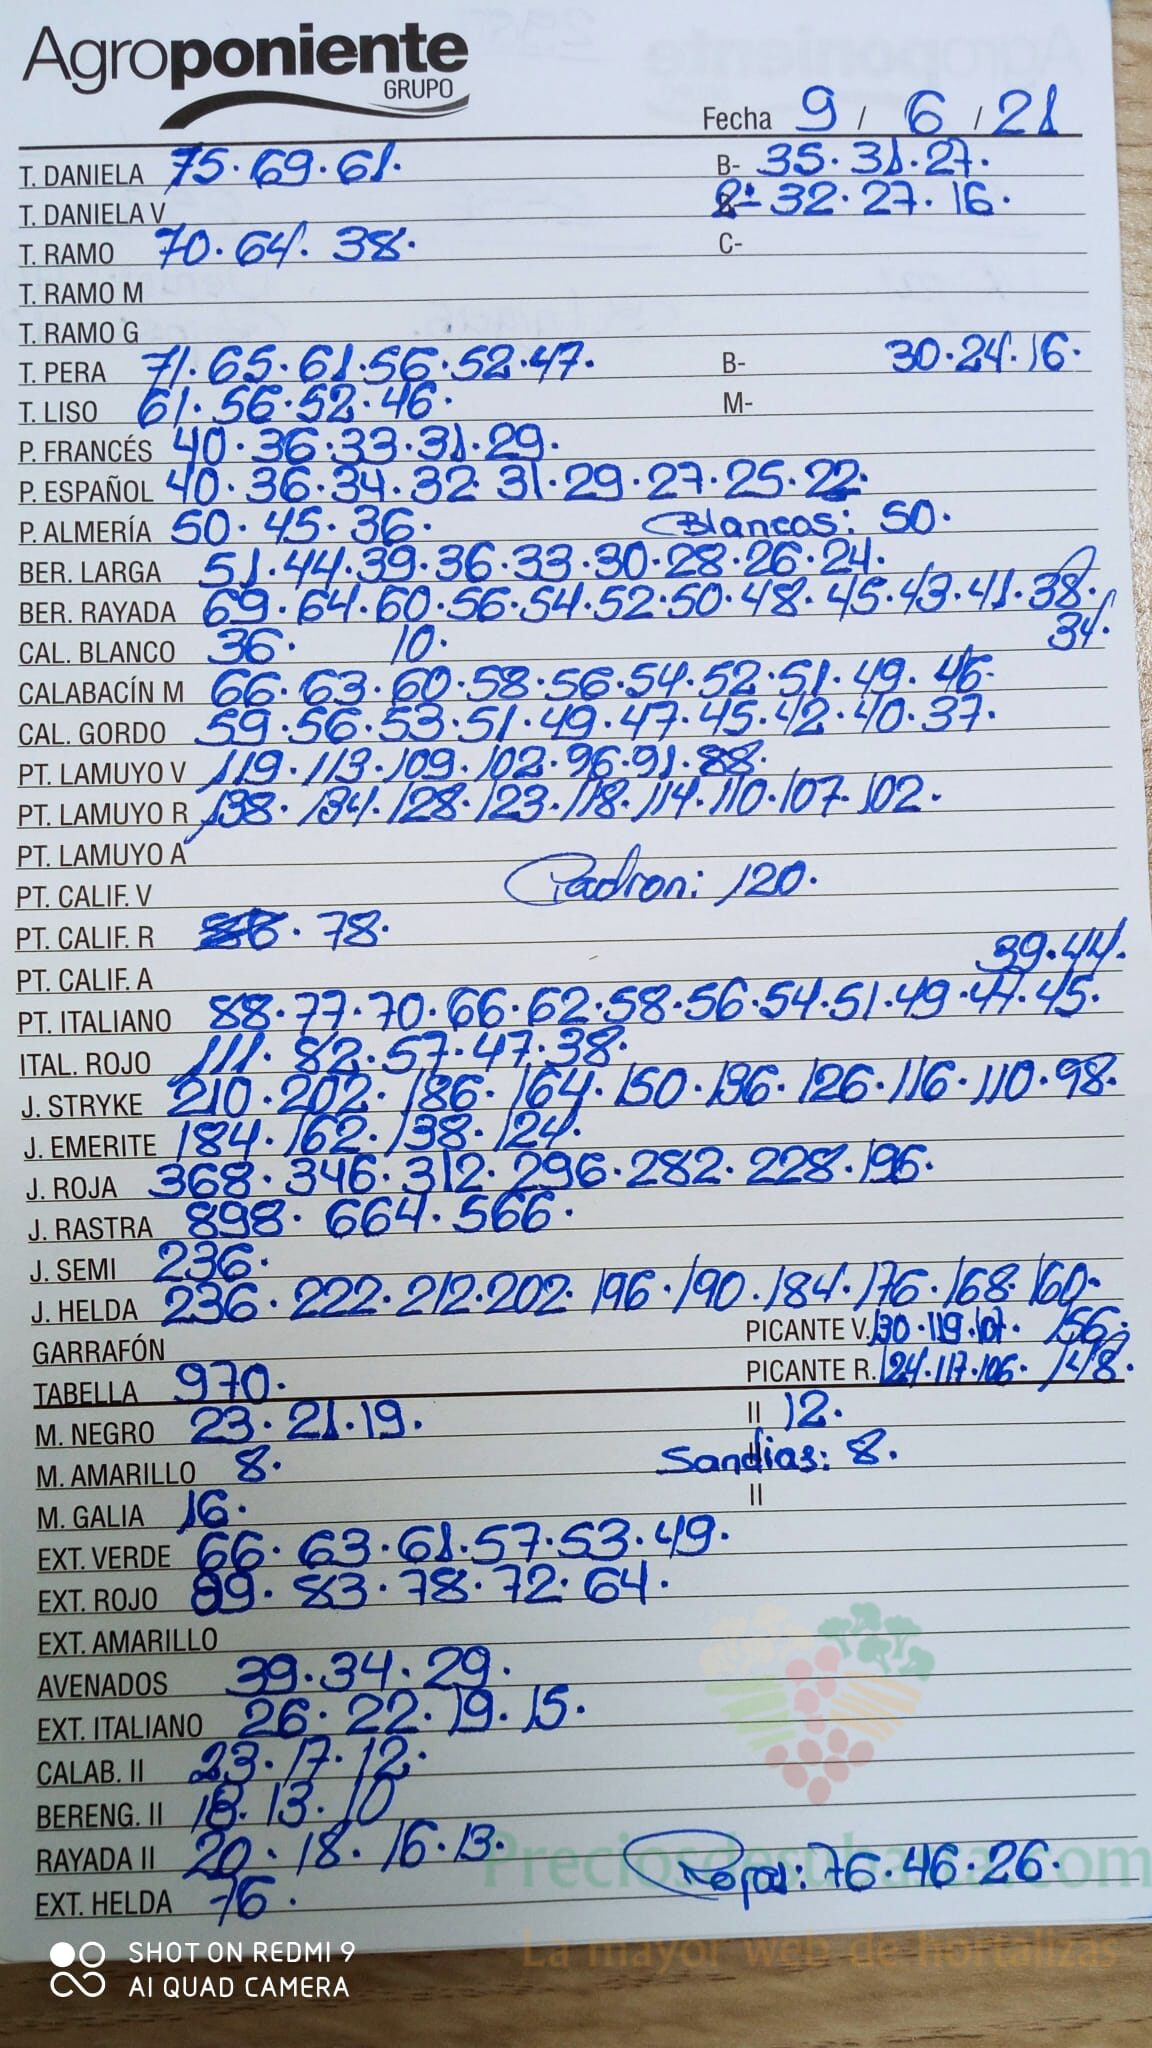 Agroponiente
GRUPO
Fecha 9 / 6 / 21
T. DANIELA 75. 69. 61. B- 35. 31. 27.
T. DANIELA V 2ª 32. 27. 16.
T. RAMO 70. 64. 38. C-
T. RAMO M
T. RAMO G
T. PERA 71. 65. 61. 56. 52. 47. B- 30. 24. 16.
T. LISO 61. 56. 52. 46. M-
P. FRANCÉS 40. 36. 33. 31. 29.
P. ESPAÑOL 40. 36. 34. 32. 31. 29. 27. 25. 22.
P. ALMERÍA 50. 45. 36. Blancos: 50.
BER. LARGA 51. 44. 39. 36. 33. 30. 28. 26. 24.
BER. RAYADA 69. 64. 60. 56. 54. 52. 50. 48. 45. 43. 41. 38.
34.
CAL. BLANCO 36. 10.
CALABACÍN M 66. 63. 60. 58. 56. 54. 52. 51. 49. 46.
CAL. GORDO 59. 56. 53. 51. 49. 47. 45. 42. 40. 37.
PT. LAMUYO V 119. 113. 109. 102. 96. 91. 88.
PT. LAMUYO R 138. 134. 128. 123. 118. 114. 110. 107. 102.
PT. LAMUYO A
PT. CALIF. V Padron: 120.
PT. CALIF. R 78.
39. 44.
PT. CALIF. A
PT. ITALIANO 88. 77. 70. 66. 62. 58. 56. 54. 51. 49. 47. 45.
ITAL. ROJO 111. 82. 57. 47. 38.
J. STRYKE 210. 202. 186. 164. 150. 136. 126. 116. 110. 98.
J. EMERITE 184. 162. 138. 124.
J. ROJA 368. 346. 312. 296. 282. 228. 196.
J. RASTRA 898. 664. 566.
J. SEMI 236.
J. HELDA 236. 222. 212. 202. 196. 190. 184. 176. 168. 160.
GARRAFÓN PICANTE V. 130. 119. 107. 156.
TABELLA 970. PICANTE R. 124. 117. 106. 148.
M. NEGRO 23. 21. 19. II 12.
M. AMARILLO 8. II Sandias: 8.
M. GALIA 16. II
EXT. VERDE 66. 63. 61. 57. 53. 49.
EXT. ROJO 89. 83. 78. 72. 64.
EXT. AMARILLO
AVENADOS 39. 34. 29.
EXT. ITALIANO 26. 22. 19. 15.
CALAB. II 23. 17. 12.
BERENG. II 18. 13. 10
RAYADA II 20. 18. 16. 13.
Preciosdesubasta.com
EXT. HELDA 76. Rojas: 76. 46. 26.
La mayor web de hortalizas
SHOT ON REDMI 9
AI QUAD CAMERA